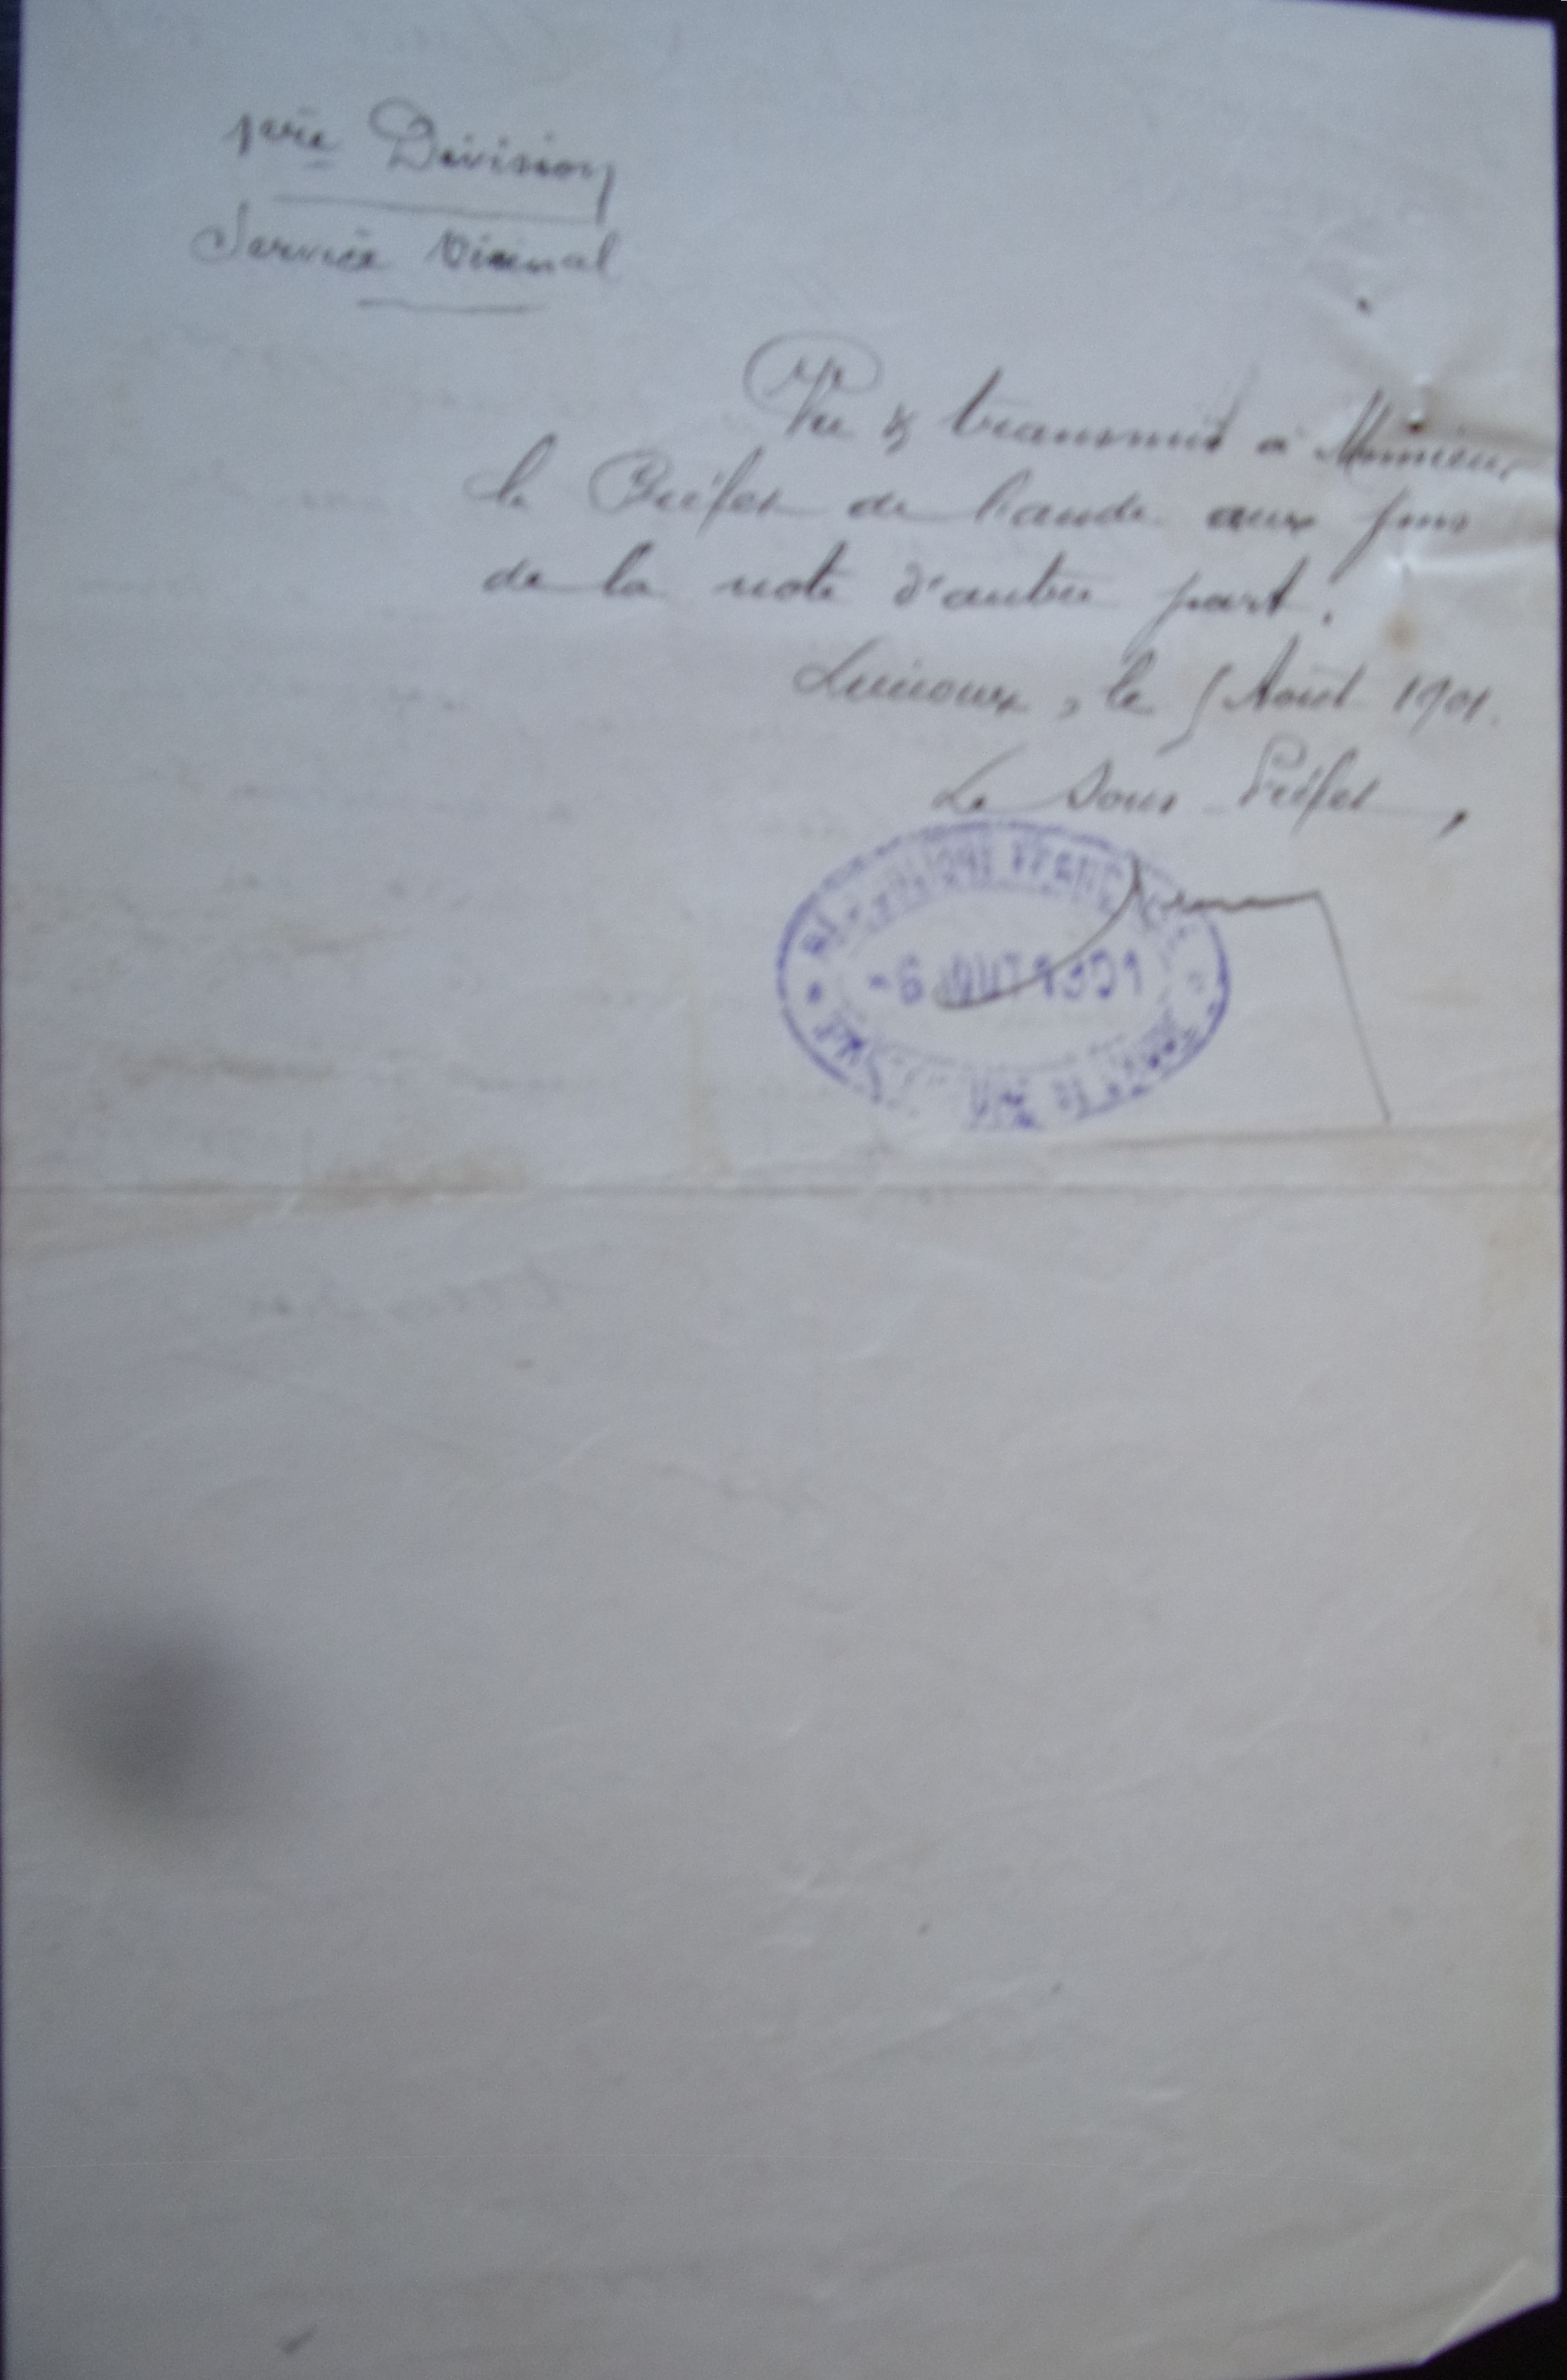 1ère Division
Service Vicinal
Vu & transmis à Monsieur
le Préfet de l'aude aux fins
de la note d'autre part.
Limoux, le 5 Août 1901.
Le Sous-Préfet,
RÉPUBLIQUE FRANÇAISE
-6 AOUT 1901
DE L'AUDE